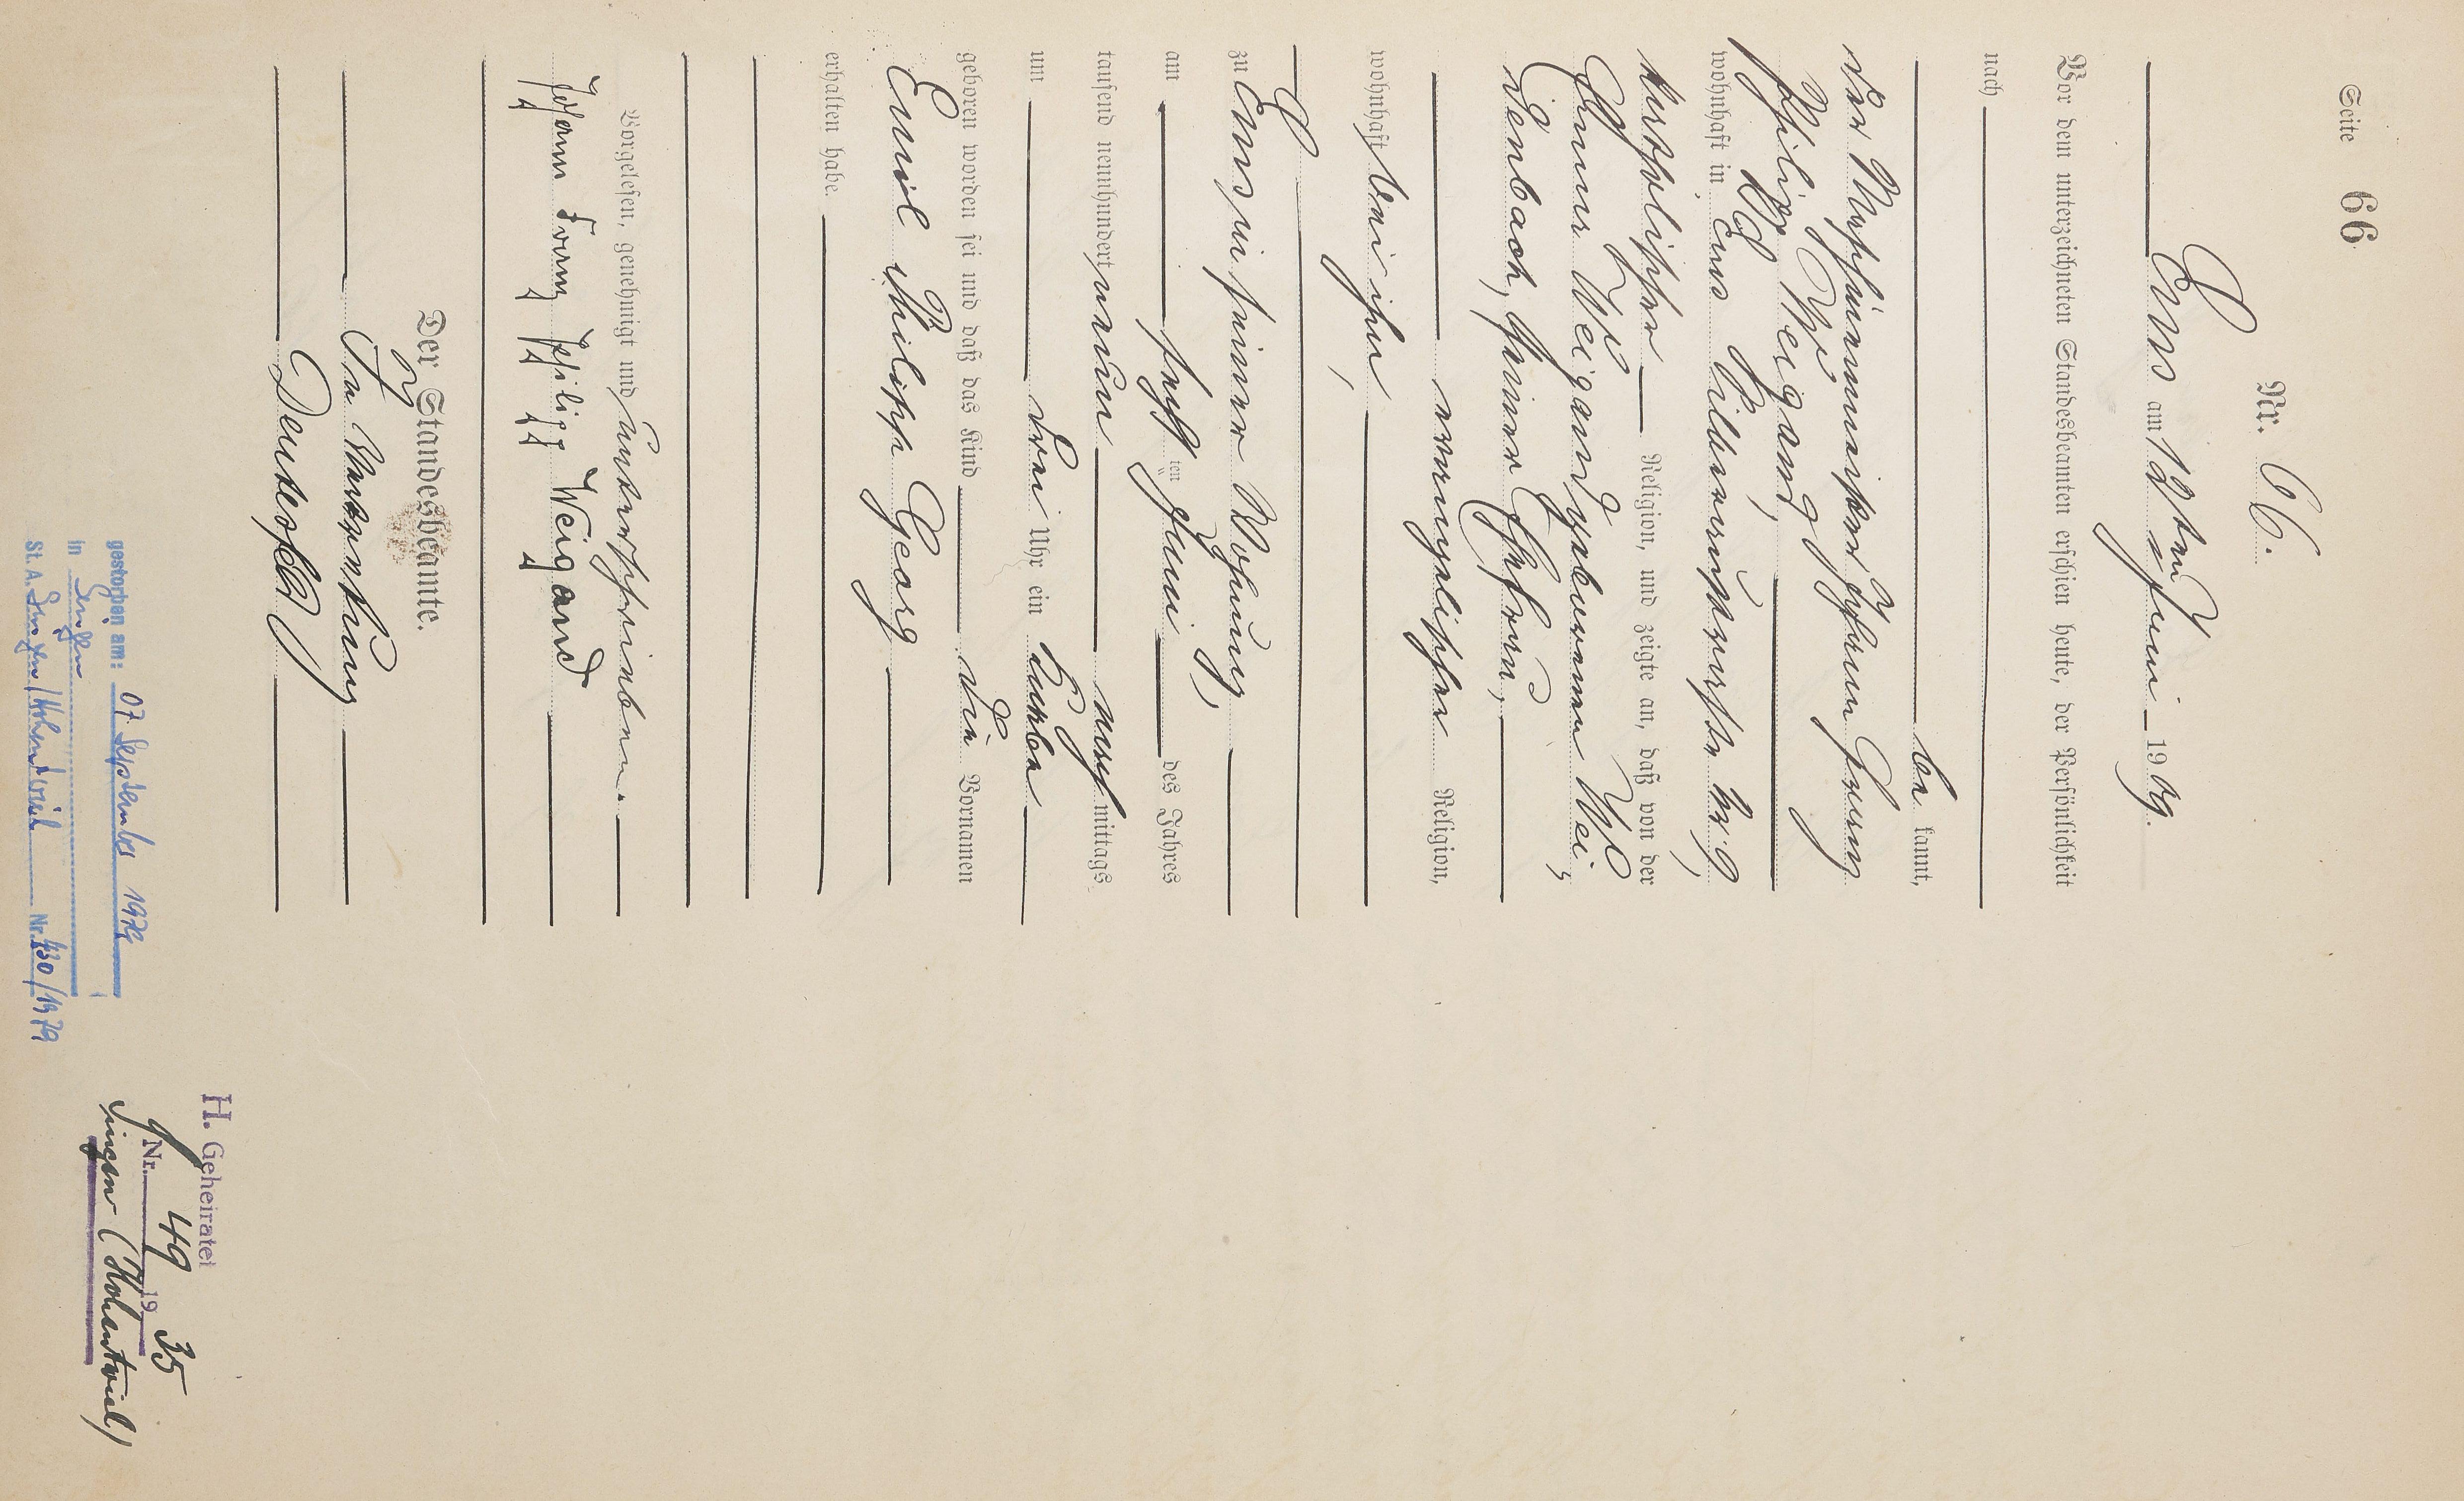 Seite 66
Nr. 66.
Ems am 12ten Juni 1909.
Vor dem unterzeichneten Standesbeamten erschien heute, der Persönlichkeit
nach
be kannt,
der Maschinenmeister Johann Franz
Philipp Weigand,
wohnhaft in Ems
katholischer Religion, und zeigte an, daß von der
Anna Weigand geborenen Wei-
denbach, seiner Ehefrau,
evangelischer Religion,
wohnhaft bei ihm,
zu Ems in seiner Wohnung,
am sechsten Juni des Jahres
tausend neunhundert neun nach mittags
um drei Uhr ein Knabe
geboren worden sei und daß das Kind die Vornamen
Emil Philipp Georg
erhalten habe.
Vorgelesen, genehmigt und unterschrieben.
Johann Franz Philipp Weigand
Der Standesbeamte.
In Vertretung
gestorben am: 07. September 1979
in Singen
St. A. Singen/Hohentwiel Nr. 430/1979
H. Geheiratet
Nr. 49 1935
Singen (Hohentwiel)